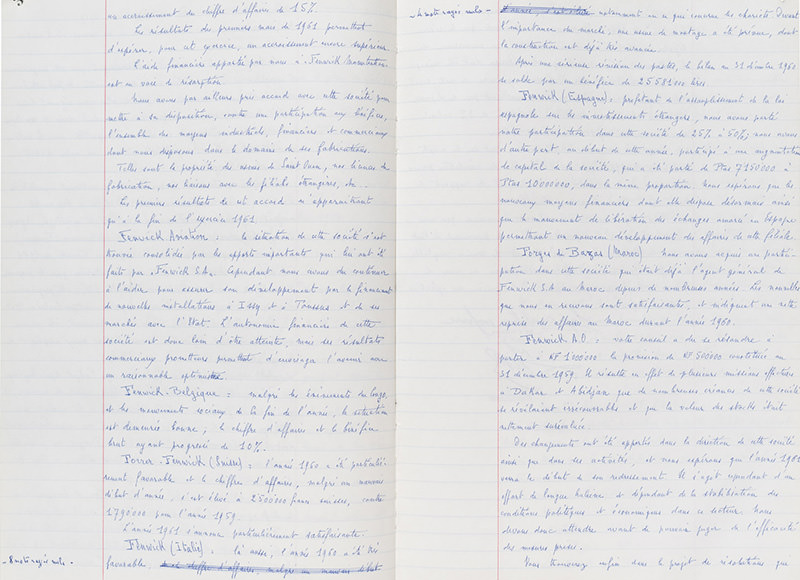 un accroissement du chiffre d'affaires de 15%.
Les résultats des premiers mois de 1961 permettent
d'espérer, pour cet exercice, un accroissement encore supérieur.
L'aide financière apportée par nous à Fenwick Manutention
est en voie de résorption.
Nous avons par ailleurs pris accord avec cette société pour
mettre à sa disposition, contre une participation aux bénéfices,
l'ensemble des moyens industriels, financiers et commerciaux
dont nous disposons dans le domaine de ses fabrications.
Telles sont la propriété des usines de Saint Ouen, nos licences de
fabrication, nos liaisons avec les filiales étrangères, etc..
Les premiers résultats de cet accord n'apparaîtront
qu'à la fin de l'exercice 1961.
Fenwick Aviation : la situation de cette société s'est
trouvée consolidée par les apports importants qui lui ont été
faits par Fenwick S.A. Cependant nous devons continuer
à l'aider pour assurer son développement par le financement
de nouvelles installations à Issy et à Toussus et de ses
marchés avec l'Etat. L'autonomie financière de cette
société est donc loin d'être atteinte, mais ses résultats
commerciaux prometteurs permettent d'envisager l'avenir avec
un raisonnable optimisme.
Fenwick-Belgique : malgré les événements du Congo,
et les mouvements sociaux de la fin de l'année, la situation
est demeurée bonne, le chiffre d'affaires et le bénéfice
brut ayant progressé de 10%.
Fenwick (Suisse) : l'année 1960 a été particuliè-
rement favorable et le chiffre d'affaires, malgré un mauvais
début d'année, s'est élevé à 2500000 francs suisses, contre
1790000 pour l'année 1959.
L'année 1961 s'annonce particulièrement satisfaisante.
Fenwick (Italie) : là aussi, l'année 1960 a été très
- 8 mots rayés nuls -
favorable, chiffre d'affaires, malgré un mauvais début
- 4 mots rayés nuls -
d'année, s'est élevé notamment en ce qui concerne les chariots. Devant
l'importance du marché, une usine de montage a été prévue, dont
la construction est déjà très avancée.
Après une sérieuse révision des postes, le bilan au 31 décembre 1960
se solde par un bénéfice de 25 581 000 lires.
Fenwick (Espagne) : profitant de l'assouplissement de la loi
espagnole sur les investissements étrangers, nous avons porté
notre participation dans cette société de 25% à 50%; nous avons
d'autre part, au début de cette année, participé à une augmentation
de capital de la société, qui a été porté de Ptas 7150000 à
Ptas 10000000, dans la même proportion. Nous espérons que les
nouveaux moyens financiers dont elle dispose désormais ainsi
que le mouvement de libération des échanges amorcé en Espagne
permettront un nouveau développement des affaires de cette filiale.
Forges de Bazas (Maroc) Nous avons acquis une partici-
pation dans cette société qui était déjà l'agent général de
Fenwick S.A au Maroc depuis de nombreuses années. Les nouvelles
que nous en recevons sont satisfaisantes, et indiquent une nette
reprise des affaires au Maroc durant l'année 1960.
Fenwick A.O. : votre conseil a dû se résoudre à
porter à NF 1000000 la provision de NF 500000 constituée au
31 décembre 1959. Il résulte en effet de plusieurs missions effectuées
à Dakar et Abidjan que de nombreuses créances de cette société
se révélaient irrécouvrables et que la valeur des stocks était
nettement surévaluée.
Des changements ont été apportés dans la direction de cette société
ainsi que dans ses activités, et nous espérons que l'année 1961
verra le début de son redressement. Il s'agit cependant d'un
effort de longue haleine et dépendant de la stabilisation des
conditions politiques et économiques dans ce secteur. Nous
devons donc attendre avant de pouvoir juger de l'efficacité
des mesures prises.
Vous trouverez enfin dans le projet de résolutions qui